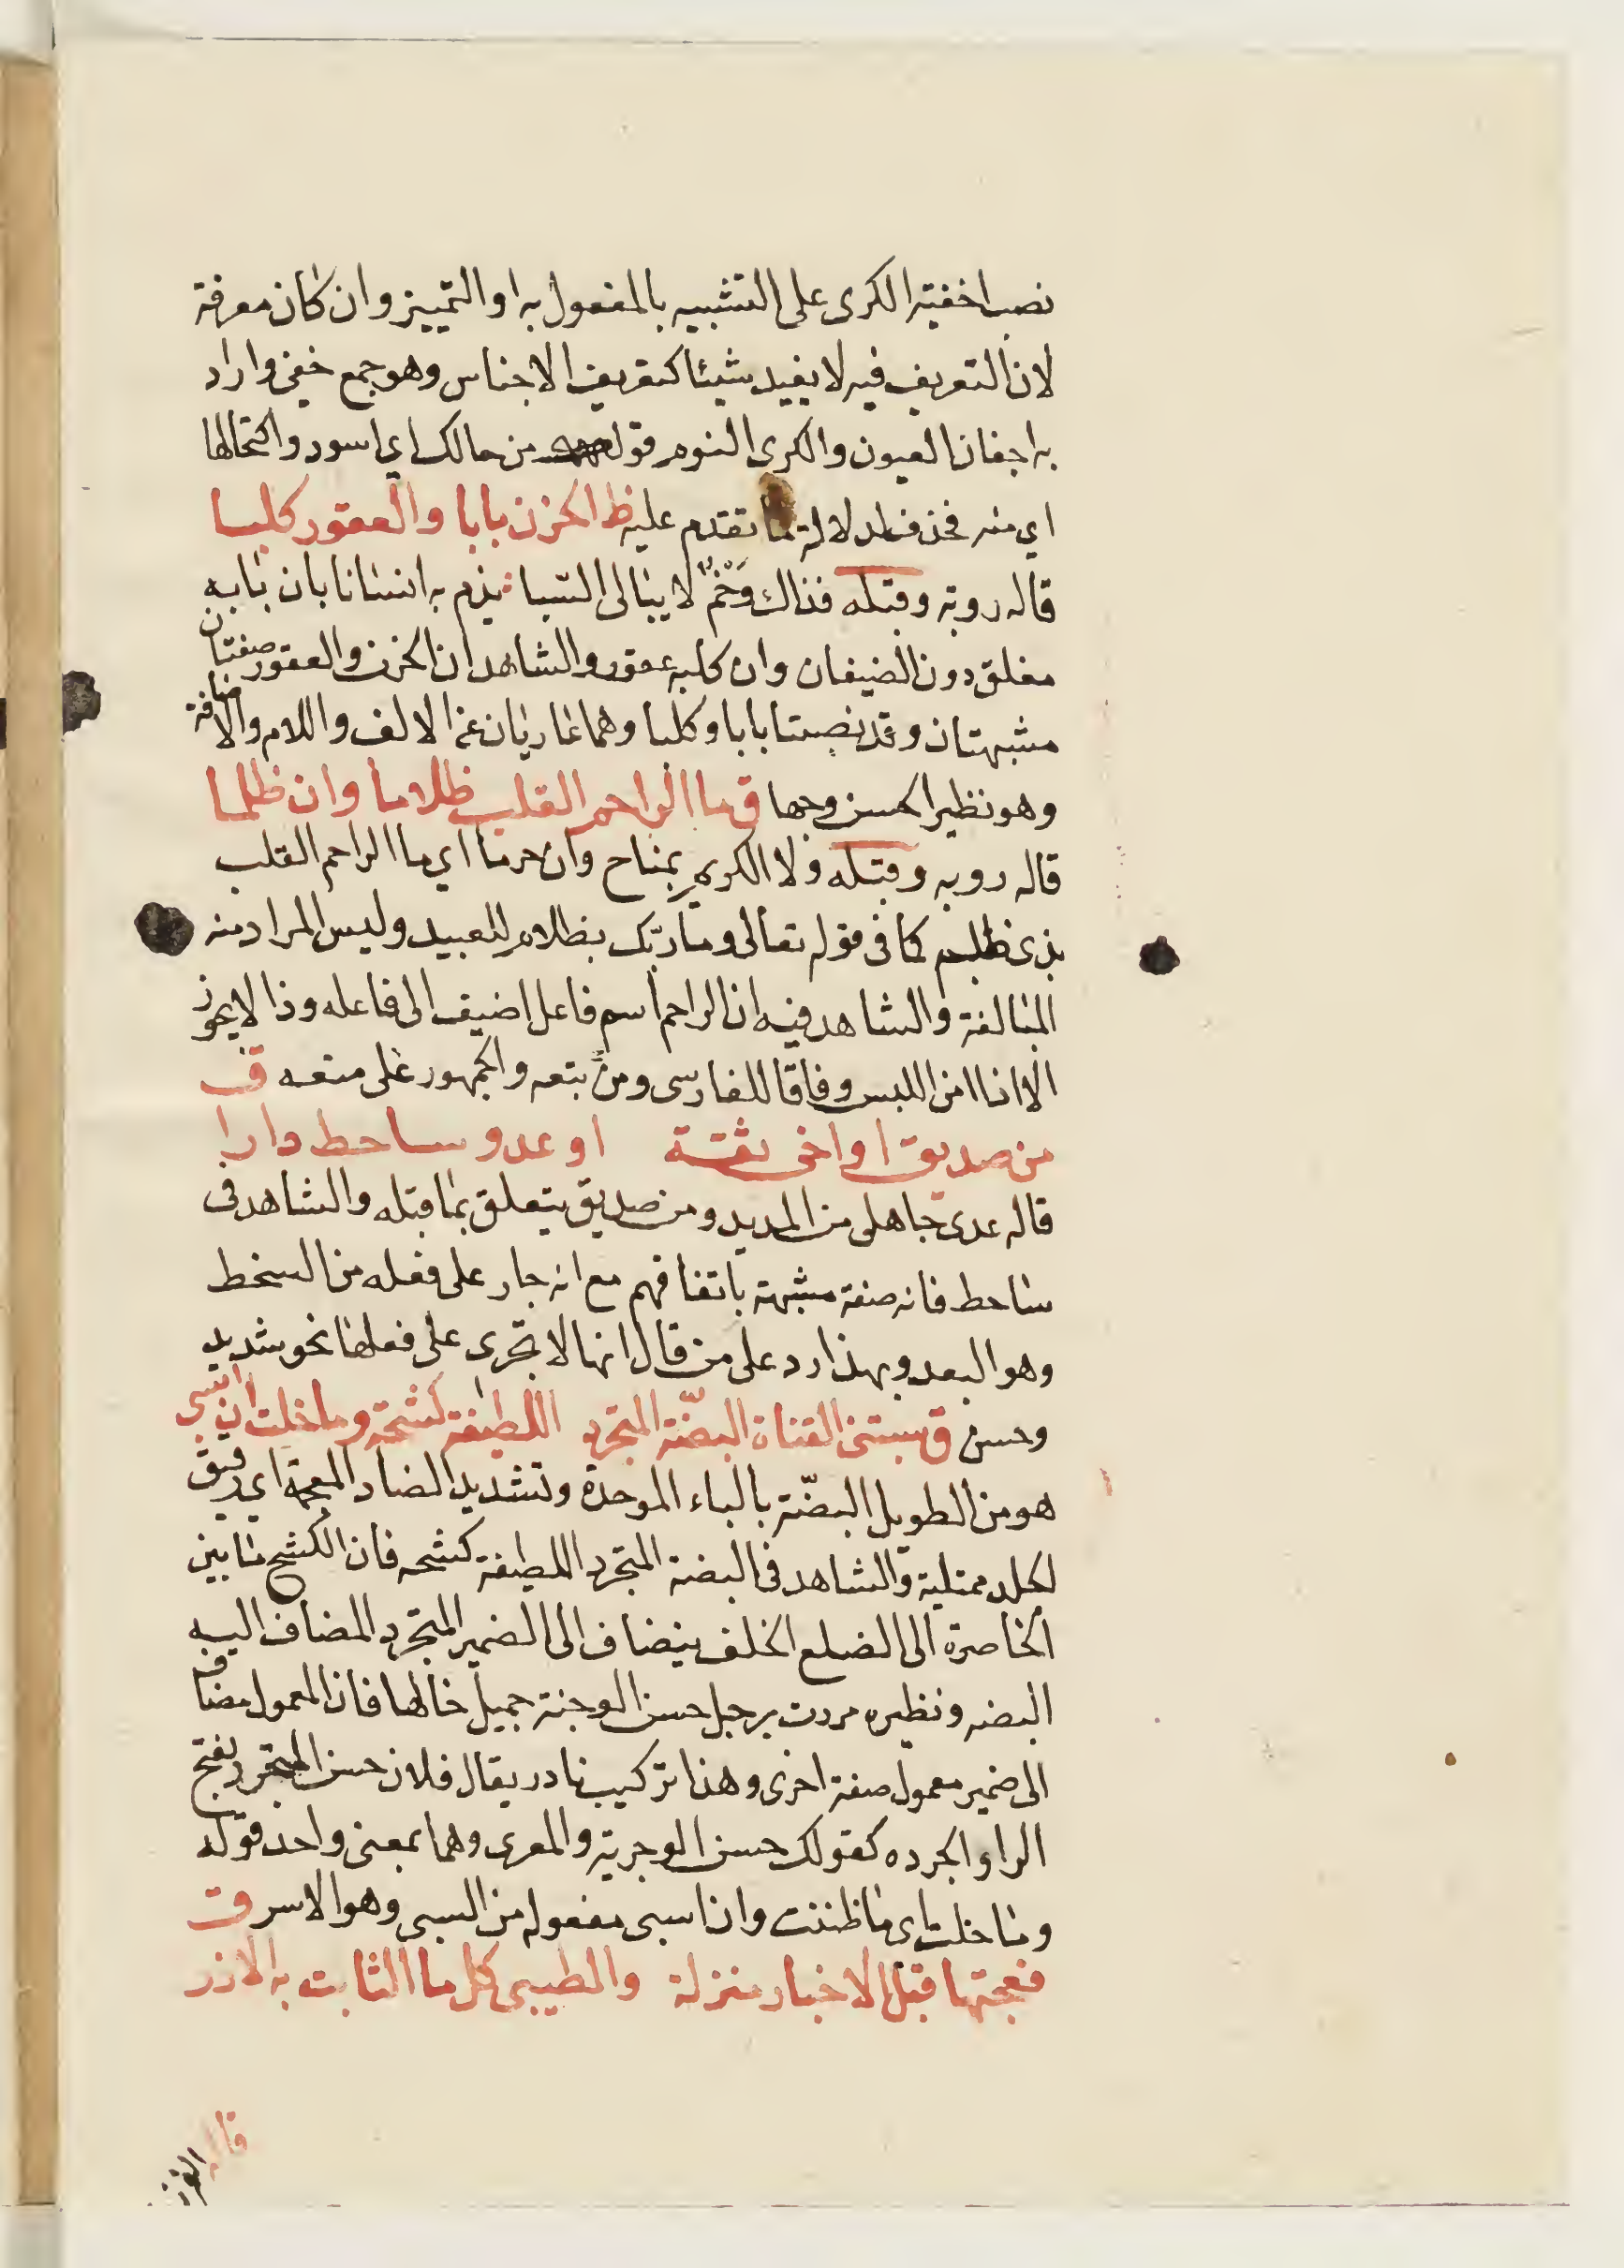 نصب اخفية الكرى على التشبيه بالمفعول به او التمييز وان كان معرفة
لان التعريف فيه لا يفيد شيئا كتعريف الاجناس وهو جمع خفي واراد
به اجفان العيون والكرى النوم قوله من حالك اي اسود واكتحالها
اي منه فحذف لدلالة ما تقدم عليه ظ الحزن بابا والعقور كلبا
قاله روبة وقبله فذاك وخم لا يبالى السبا يذم به انسانا بان بابه
مغلق دون الضيفان وان كلبه عقور والشاهد ان الحزن والعقور صفتان
مشبهتان وقد نصبتا بابا وكلبا وهما عاريان عن الالف واللام والاضافة
وهو نظير الحسن وجها ق ما الراحم القلب ظلاما وان ظلما
قاله روبه وقبله ولا الكريم بمناح وان حرما اي ما الراحم القلب
بذى ظلم كما فى قوله تعالى وما ربك بظلام للعبيد وليس المراد منه
المبالغة والشاهد فيه ان الراحم اسم فاعل اضيف الى فاعله وذا لا يجوز
الا اذا امن اللبس وفاقا للفارسى ومن تبعه والجمهور على منعه ق
من صديق او اخى ثقة او عدو ساحط دارا
قاله عدى جاهلى من المديد ومن صديق يتعلق بما قبله والشاهد فى
ساحط فانه صفة مشبهة باتفاقهم مع انه جار على فعله من السخط
وهو البعد وبهذا رد على من قال انها لا تجرى على فعلها نحو شديد
وحسن ق سبتنى الفتاة البضّة المتجرد اللطيفة كشحه وما خلت ان اسبى
هو من الطويل البضّة بالباء الموحدة وتشديد الضاد المعجمة اي رقيق
لجلد ممتلية والشاهد فى البضة المتجرد اللطيفة كشحه فان الكشح ما بين
الخاصرة الى الضلع الخلف يضاف الى الضمير المتجرد المضاف اليه
البضه ونظيره مررت برجل حسن الوجنة جميل خالها فان المعمول مضاف
الى ضمير معمول صفة اخرى وهذا تركيب نادر يقال فلان حسن المتجرد بفتح
الراء والجرده كقولك حسن الوجرية والمعرى وهما بمعنى واحد قوله
وما خلت اى ما ظننت وان اسبى مفعوله من السبى وهو الاسر ق
فعجتها قبل الاخبار منزلة والطيبى كل ما التاثت به الازر
قاله الفرز